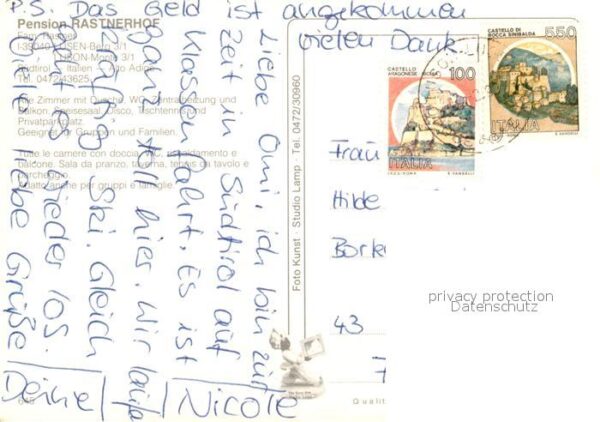 P.S. Das Geld ist angekommen
vielen Dank.
Pension RASTNERHOF
Fam. Rastner
I-39040 LÜSEN-Berg 3/1
LUSON-Monte 3/1
Südtirol - Italien - Alto Adige
Tel. 0472/43625
Alle Zimmer mit Dusche, WC, Zentralheizung und
Balkon, Speisesaal, Disco, Tischtennis und
Privatparkplatz
Geeignet für Gruppen und Familien.
Tutte le camere con doccia, WC, riscaldamento e
balcone. Sala da pranzo, taverna, tennis da tavolo e
parcheggio
Adatto anche per gruppi e famiglie
Liebe Omi, ich bin zur
Zeit in Südtirol auf
Klassenfahrt. Es ist
ganz toll hier. Wir
Ski. Gleich
wieder los.
liebe Grüße
Deine
Nicole
Foto Kunst · Studio Lamp · Tel. 0472/30960
CASTELLO
100
ITALIA
CASTELLO DI
ROCCA SINIBALDA
550
ITALIA
Frau
Hilde
Bork
43
privacy protection
Datenschutz
Qualit